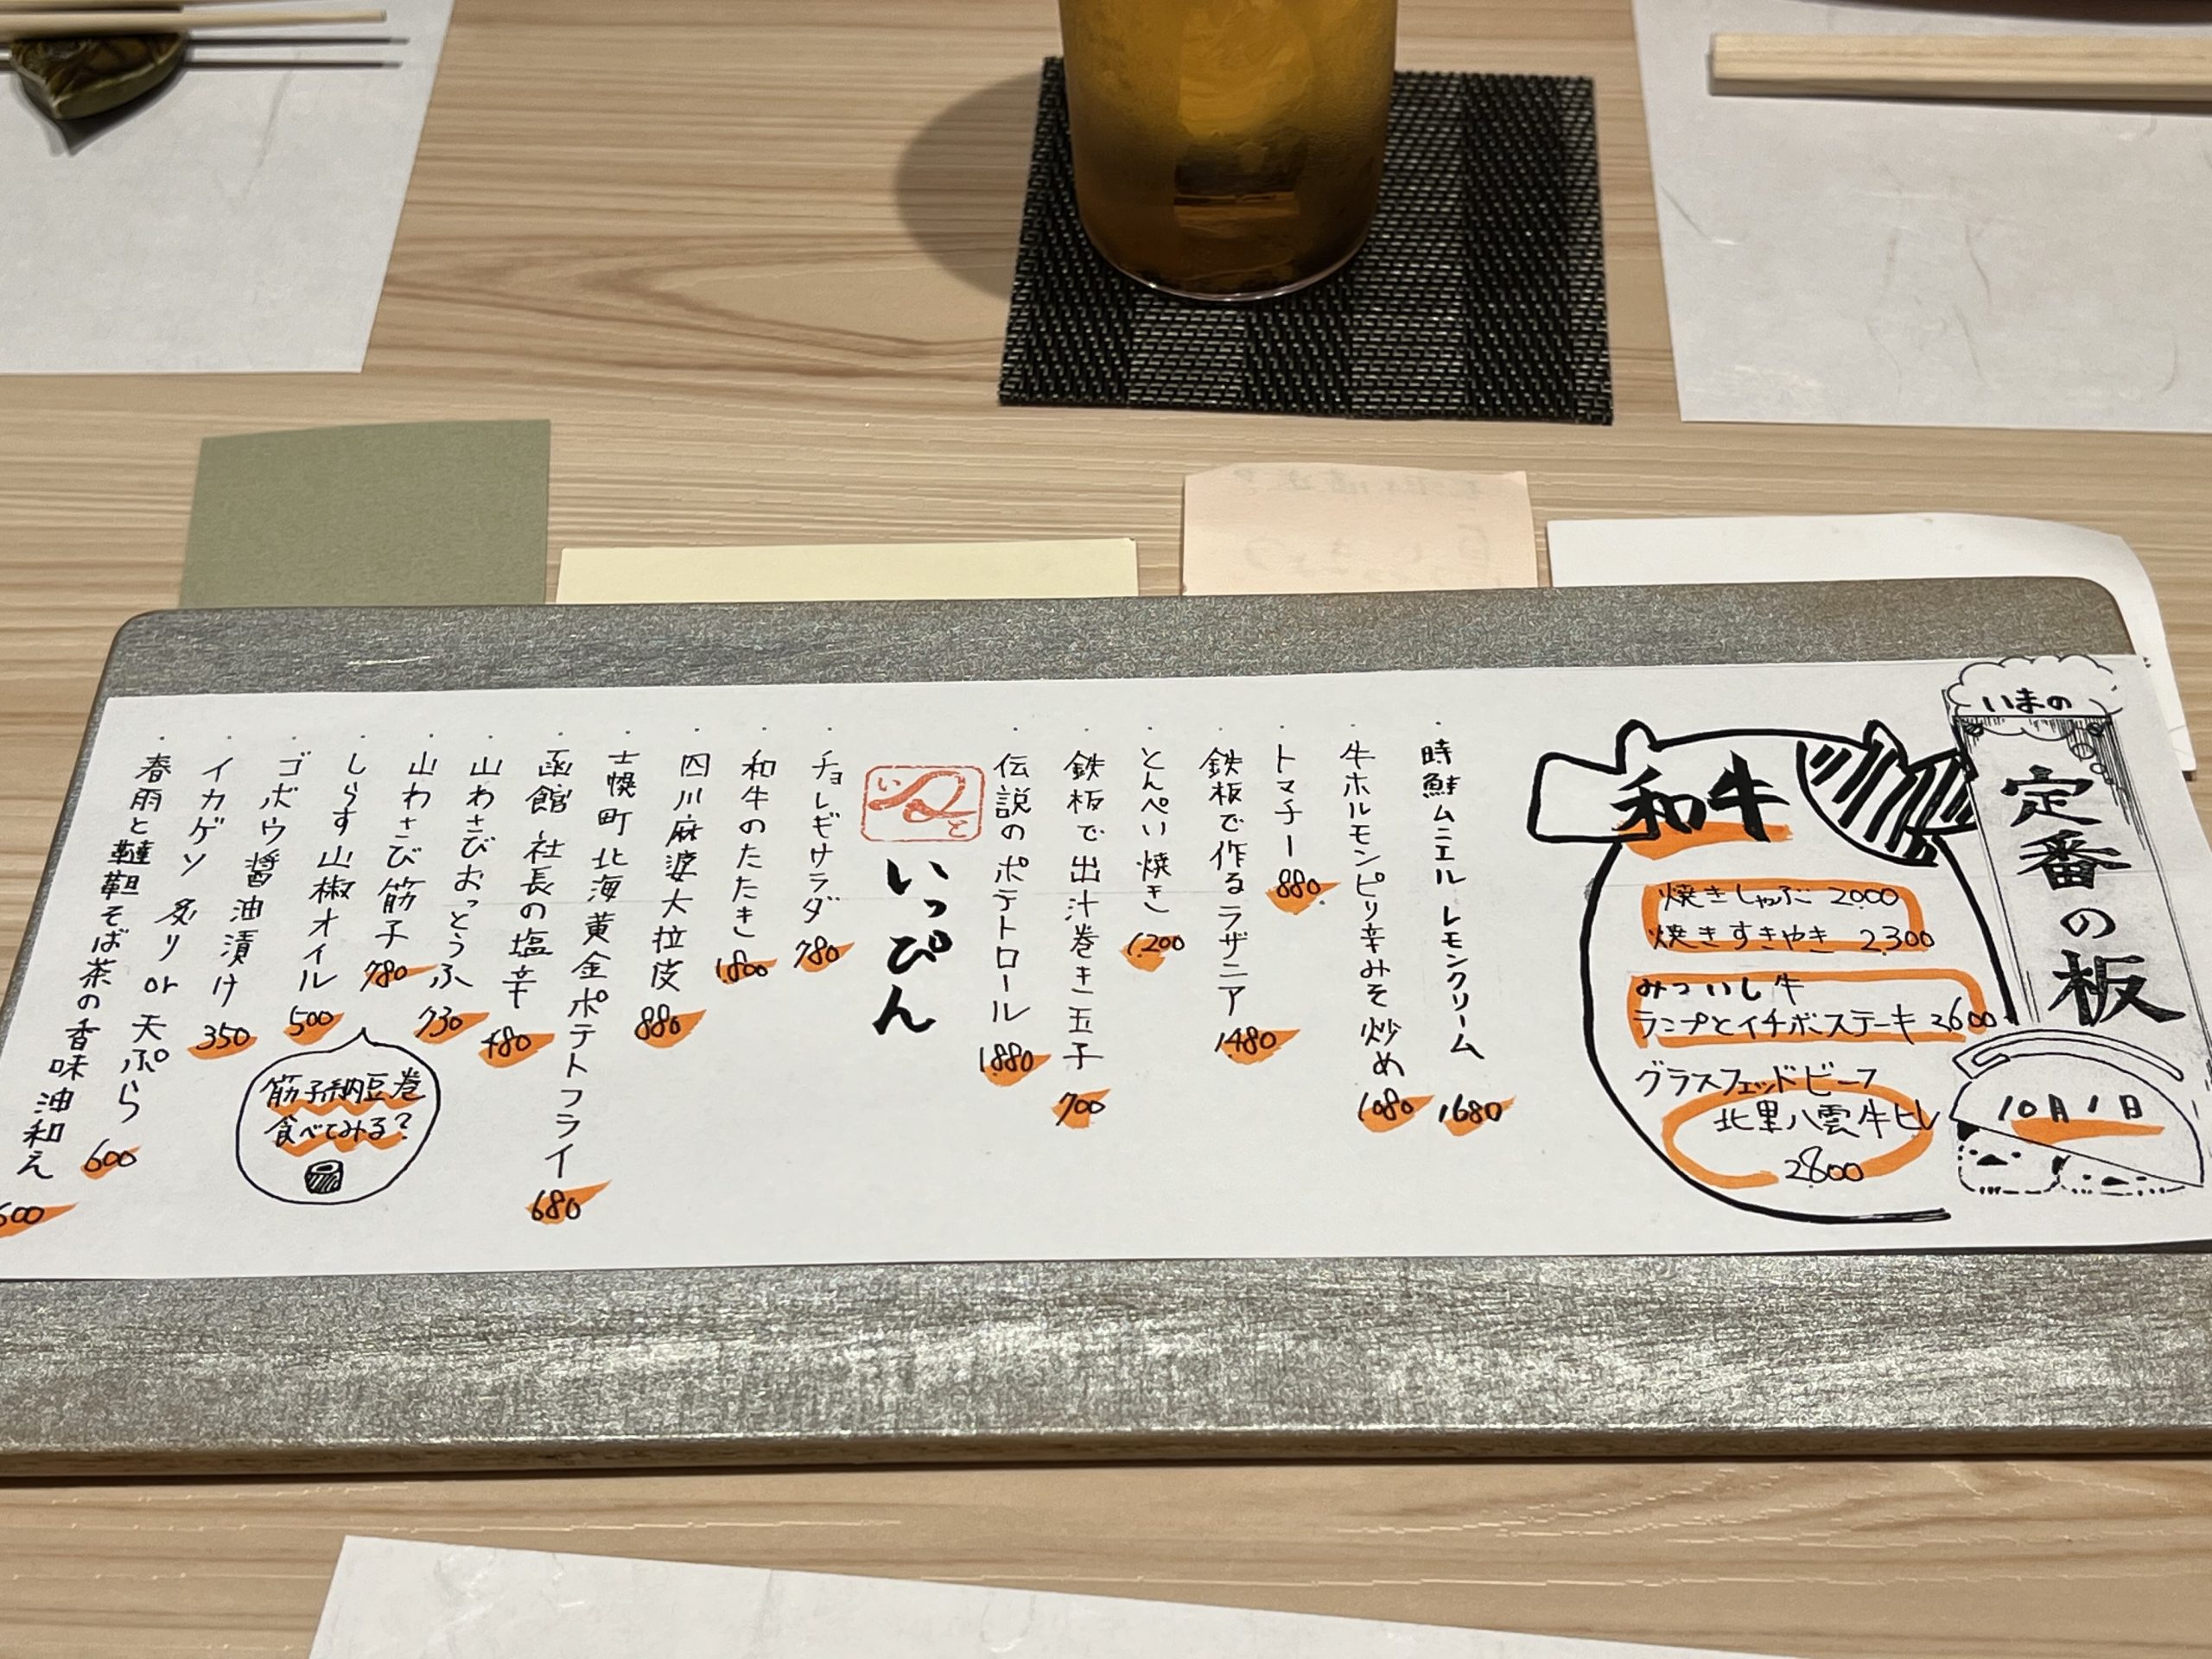 いまの
定番の板
10月1日
和牛
焼きしゃぶ 2000
焼きすきやき 2300
みついし牛
ランプとイチボステーキ 2600
グラスフェッドビーフ
北里八雲牛ヒレ
2800
・時鮭ムニエル レモンクリーム 1680
・牛ホルモンピリ辛みそ炒め 1080
・トマチー 880
・鉄板で作るラザニア 1480
・とんぺい焼き 1200
・鉄板で出汁巻き玉子 700
・伝説のポテトロール 1880
いっぴん
・チョレギサラダ 780
・和牛のたたき 1800
・四川麻婆大拉皮 880
・士幌町 北海黄金ポテトフライ 680
・函館 社長の塩辛 480
・山わさびおっとうふ 730
・山わさび筋子 780
・しらす山椒オイル 500
筋子納豆巻
食べてみる?
・ゴボウ醤油漬け 350
・イカゲソ 炙り or 天ぷら 600
・春雨と韃靼そば茶の香味油和え 600